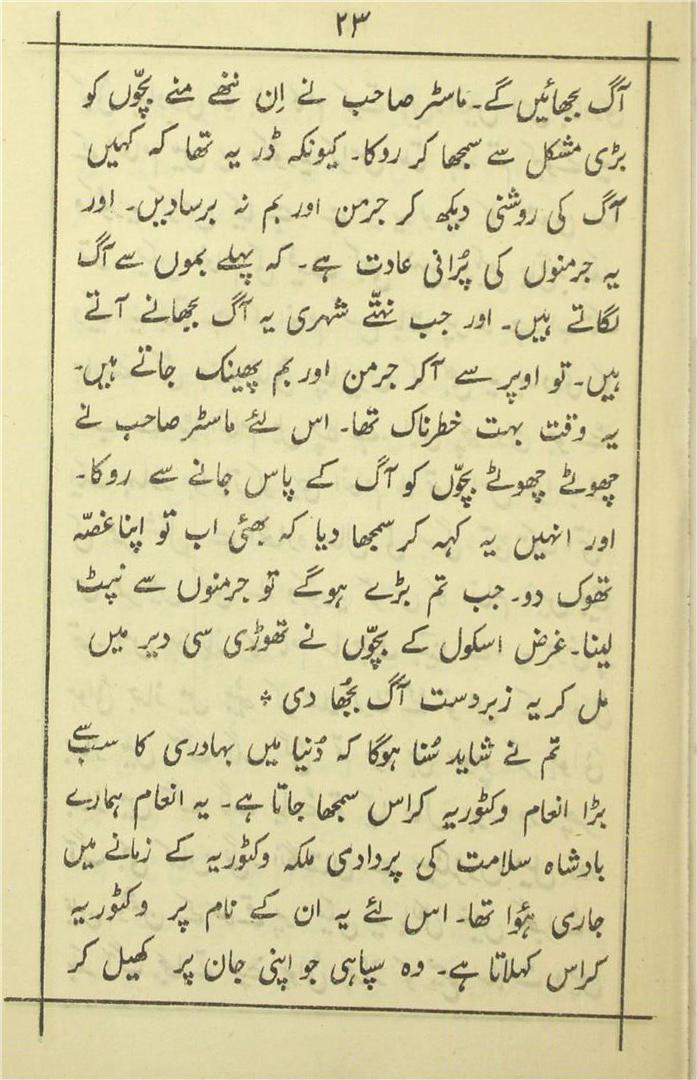 ۲۳
آگ بجھائیں گے۔ ماسٹر صاحب نے اِن ننھے منے بچّوں کو
بڑی مشکل سے سمجھا کر روکا۔ کیونکہ ڈر یہ تھا کہ کہیں
آگ کی روشنی دیکھ کر جرمن اور بم نہ برسادیں۔ اور
یہ جرمنوں کی پُرانی عادت ہے۔ کہ پہلے بموں سے آگ
لگاتے ہیں۔ اور جب نہتّے شہری یہ آگ بجھانے آتے
ہیں۔ تو اوپر سے آکر جرمن اور بم پھینک جاتے ہیں۔
یہ وقت بہت خطرناک تھا۔ اس لئے ماسٹر صاحب نے
چھوٹے چھوٹے بچّوں کو آگ کے پاس جانے سے روکا۔
اور انہیں یہ کہہ کر سمجھا دیا کہ بھئی اب تو اپنا غصّہ
تھوک دو۔ جب تم بڑے ہوگے تو جرمنوں سے نپٹ
لینا۔ غرض اسکول کے بچّوں نے تھوڑی سی دیر میں
مل کر یہ زبردست آگ بجُھا دی ٭
تم نے شاید سُنا ہوگا کہ دُنیا میں بہادری کا سب سے
بڑا انعام وکٹوریہ کراس سمجھا جاتا ہے۔ یہ انعام ہمارے
بادشاہ سلامت کی پردادی ملکہ وکٹوریہ کے زمانے میں
جاری ہؤا تھا۔ اس لئے یہ ان کے نام پر وکٹوریہ
کراس کہلاتا ہے۔ وہ سپاہی جو اپنی جان پر کھیل کر